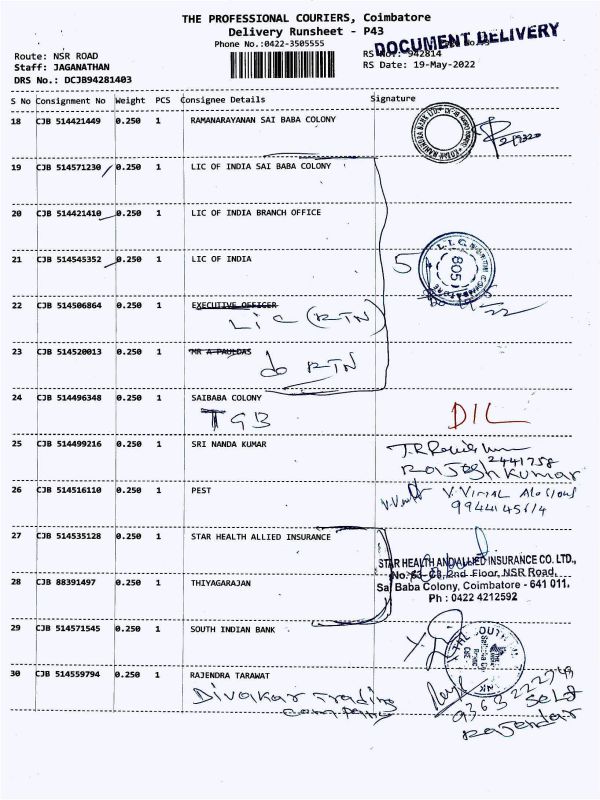 THE PROFESSIONAL COURIERS, Coimbatore
Delivery Runsheet - P43
Phone No.:0422-3505555
DOCUMENT DELIVERY
Route: NSR ROAD
RS No.: 942814
Staff: JAGANATHAN
RS Date: 19-May-2022
DRS No.: DCJB94281403
S No Consignment No Weight PCS Consignee Details Signature
18 CJB 514421449 0.250 1 RAMANARAYANAN SAI BABA COLONY
19 CJB 514571230 0.250 1 LIC OF INDIA SAI BABA COLONY
20 CJB 514421410 0.250 1 LIC OF INDIA BRANCH OFFICE
21 CJB 514545352 0.250 1 LIC OF INDIA
5
805
22 CJB 514506864 0.250 1 EXECUTIVE OFFICER
LIC (RTN)
23 CJB 514520013 0.250 1 MR A PAULDAS
do RTN
24 CJB 514496348 0.250 1 SAIBABA COLONY
TGB
DIL
25 CJB 514499216 0.250 1 SRI NANDA KUMAR
2441758
Rajesh Kumar
26 CJB 514516110 0.250 1 PEST
27 CJB 514535128 0.250 1 STAR HEALTH ALLIED INSURANCE
STAR HEALTH AND ALLIED INSURANCE CO. LTD.,
2nd Floor, NSR Road,
28 CJB 88391497 0.250 1 THIYAGARAJAN
Sai Baba Colony, Coimbatore - 641 011.
Ph : 0422 4212592
29 CJB 514571545 0.250 1 SOUTH INDIAN BANK
30 CJB 514559794 0.250 1 RAJENDRA TARAWAT
Divakar Trading
Company
9363222749
Self
Rajendar